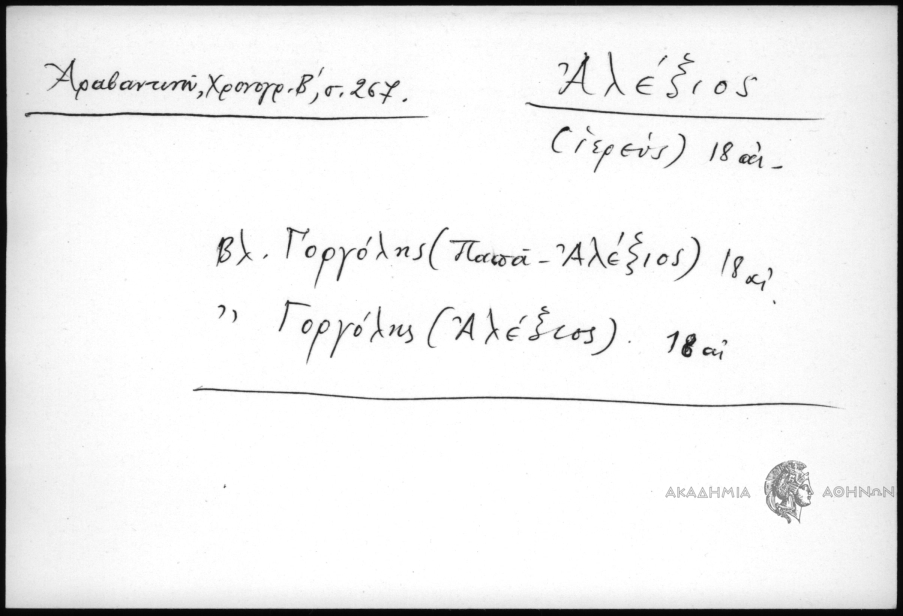 Ἀραβαντινοῦ, Χρονογρ. Β΄, σ. 267.
Ἀλέξιος
(ἱερεύς) 18 αἰ.
Βλ. Γοργόλης (Παπᾶ - Ἀλέξιος) 18 αἰ.
〃 Γοργόλης (Ἀλέξιος). 18 αἰ
ΑΚΑΔΗΜΙΑ ΑΘΗΝΩΝ